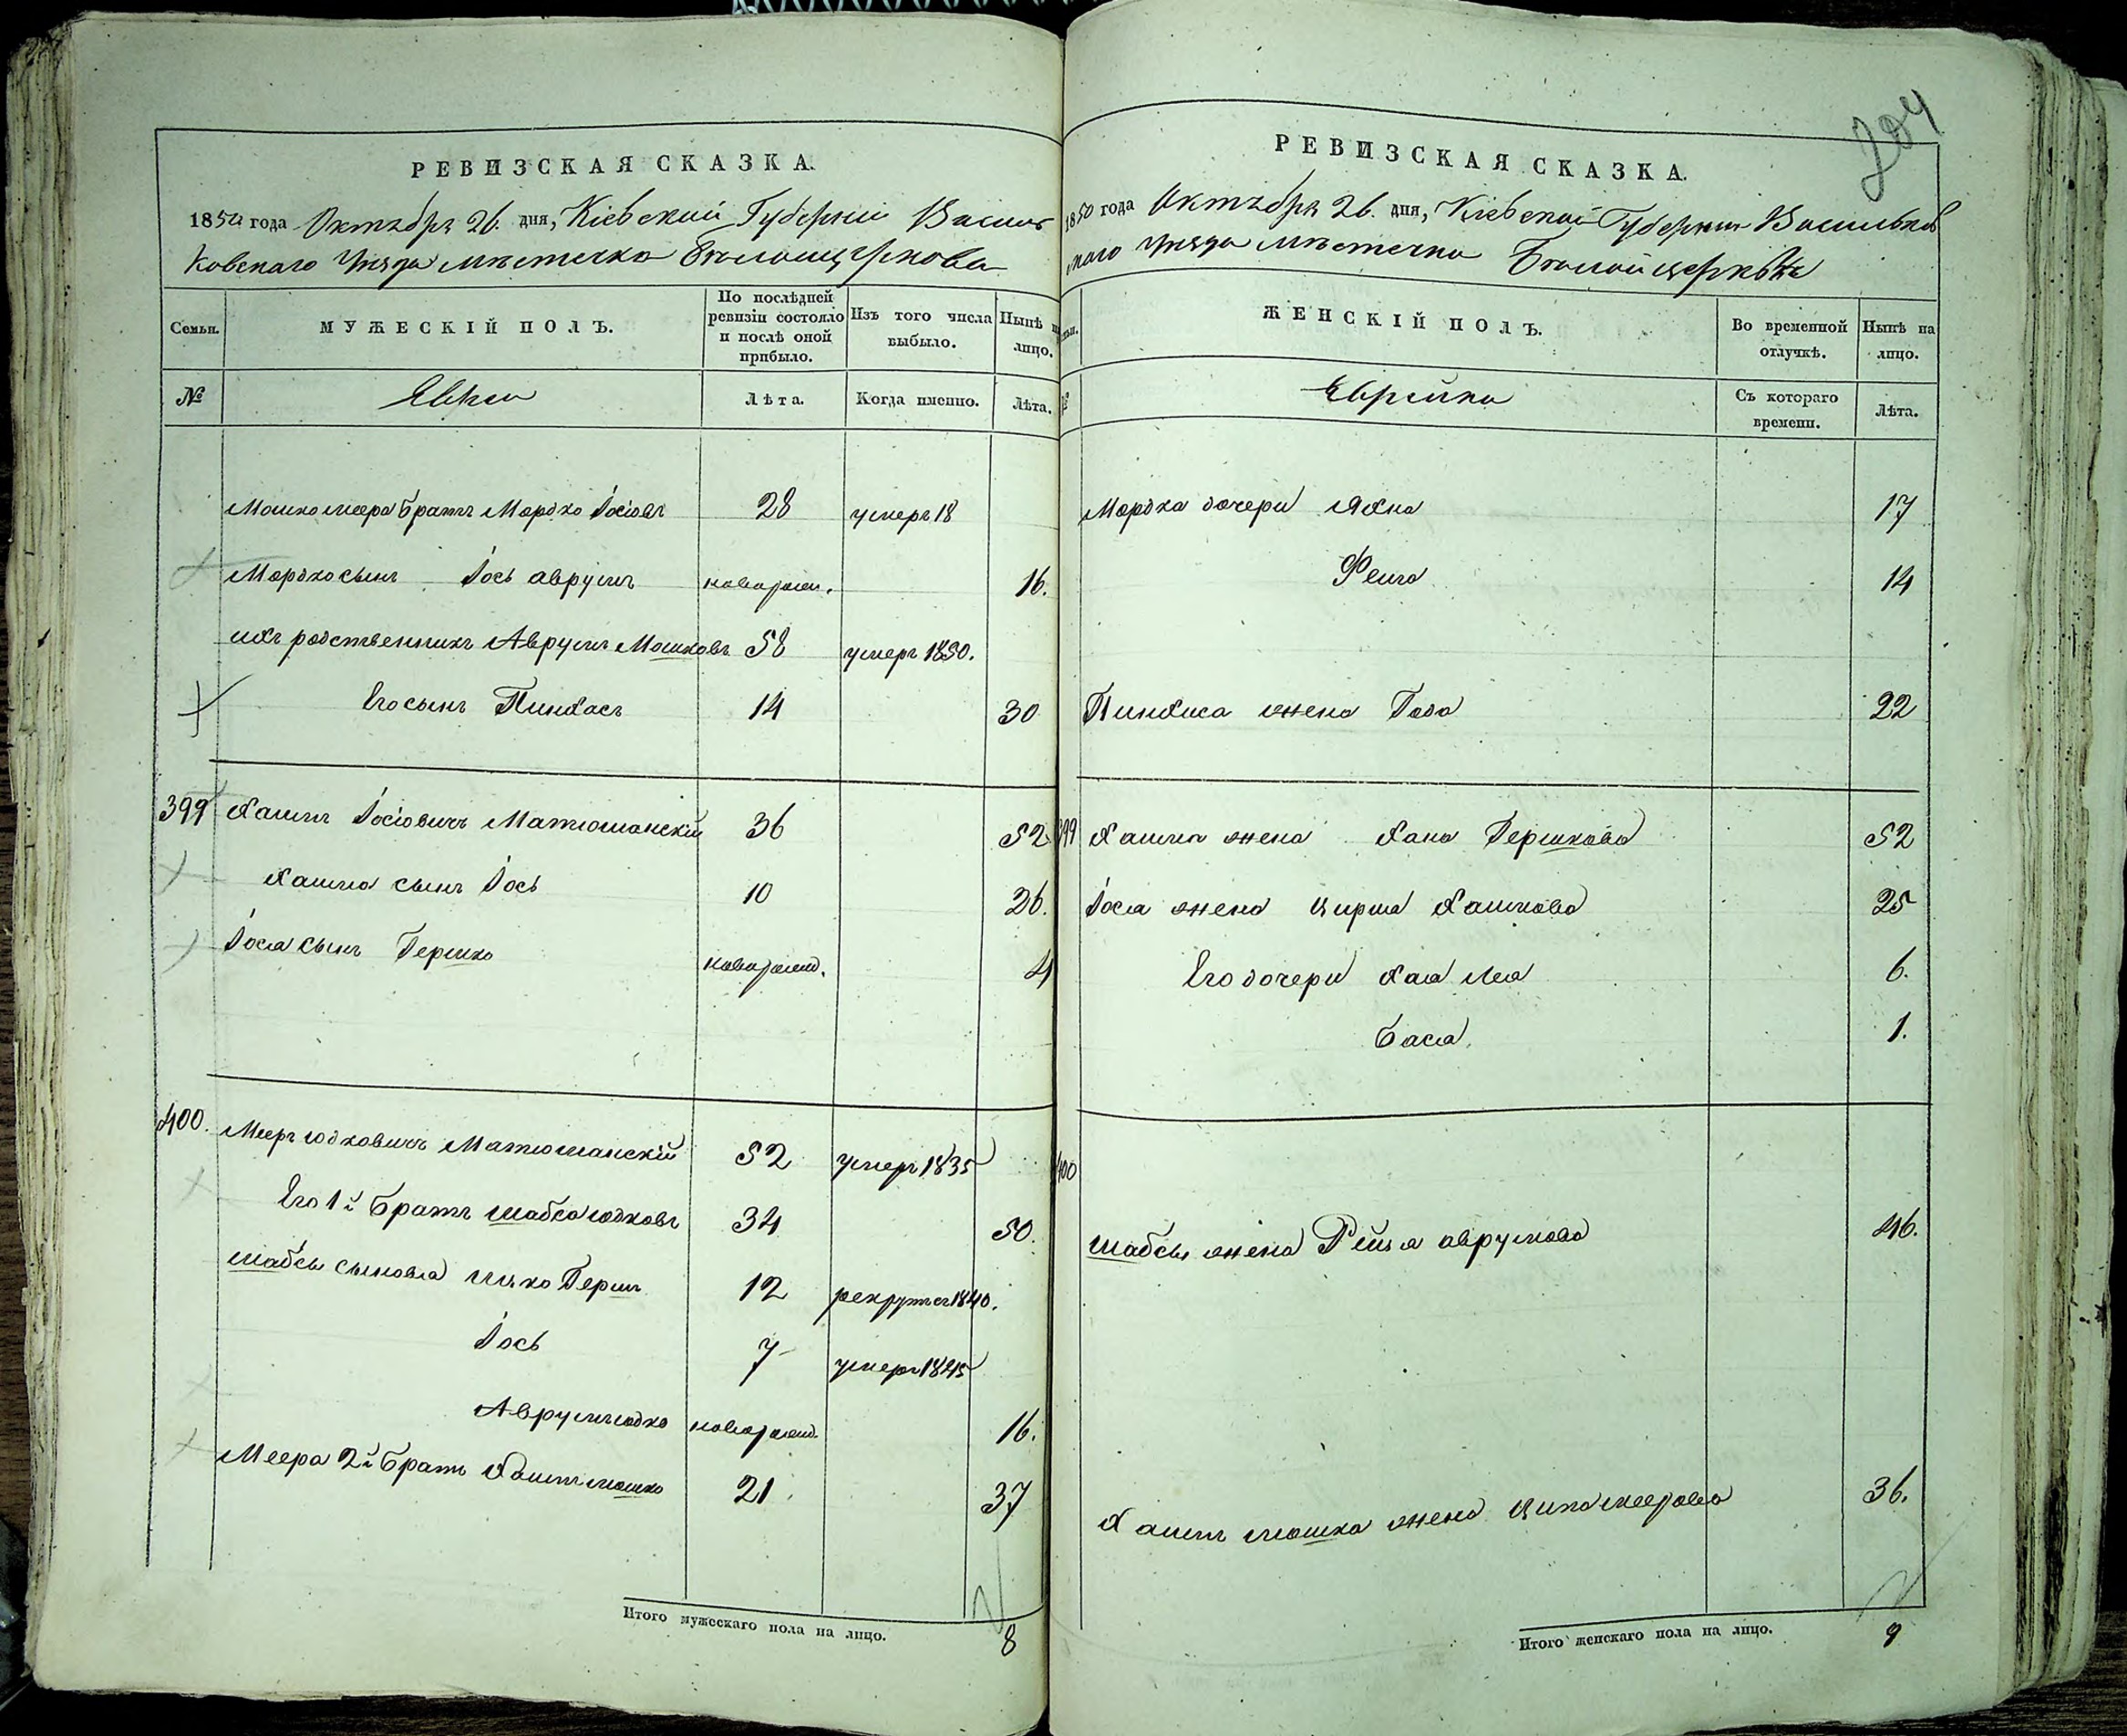 204
РЕВИЗСКАЯ СКАЗКА.
1850 года Октября 26. дня, Кіевской Губерніи Василь
ковскаго Уѣзда мѣстечка Бѣлойцеркови
Семьи.
МУЖЕСКІЙ ПОЛЪ.
По послѣдней ревизіи состояло и послѣ оной прибыло.
Изъ того числа выбыло.
Нынѣ на лицо.
№
Евреи
Лѣта.
Когда именно.
Лѣта.
Мошко меера братъ Мордко Іосіовъ 28 умеръ 18
Мордко сынъ Іось аврумъ новорожд. 16.
ихъ родственникъ Аврумъ Мошковъ 58 умеръ 1850.
Его сынъ Пинхасъ 14 30
399 Хаимъ Іосіовичъ Матюшанскій 36 52
Хаима сынъ Іось 10 26.
Іося сынъ Гершко новорожд. 4
400. Мееръ юдковичъ Матюшанскій 52 умеръ 1835
Его 1й братъ шабса юдковъ 34 50.
шабсы сыновья ицко Герш 12 рекрутъ 1840.
Іось 7 умеръ 1845
Аврумъ юдко новорожд. 16.
Меера 2й братъ Хаимъ мошко 21 37
Итого мужескаго пола на лицо. 8
РЕВИЗСКАЯ СКАЗКА.
1850 года Октября 26. дня, Кіевской Губерніи Васильков
скаго Уѣзда мѣстечка Бѣлойцеркви
ЖЕНСКІЙ ПОЛЪ.
Во временной отлучкѣ.
Нынѣ на лицо.
Еврейки
Съ котораго времени.
Лѣта.
Мордка дочери Яхна 17
Фейга 14
Пинхаса жена Года 22
399 Хаима жена Хана Гершкова 52
Іося жена Цирля Хаимова 25
Его дочери Хая Лея 6.
Бася 1.
400
шабсы жена Рейзя аврумова 46.
Хаимъ мошка жена Ципа меерова 36.
Итого женскаго пола на лицо. 9